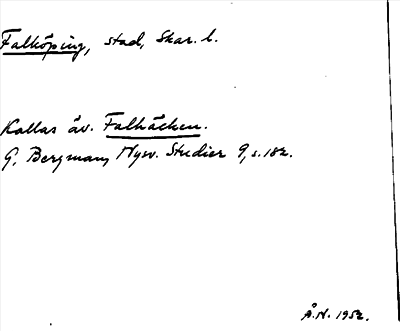 Falköping, stad, Skar. l.
Kallas äv. Falhäcken.
G. Bergman, Nysv. Studier 9, s. 182.
Å.N. 1952.